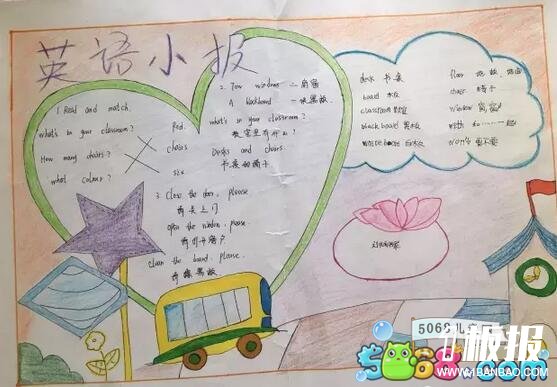 英语小报
1. Read and match.
what's in your classroom?
How many chairs?
what colour?
Red.
chairs
six
2. Tow windows 二窗窗
A blackboard 一块黑板
what's in your classroom?
教室里有什么?
Desks and chairs.
书桌和椅子
3. Close the door, please
请关上门
open the window, please.
请打开窗户
clean the board, please.
请擦黑板
desk 书桌
board 木板
classroom 教室
black board 黑板
floor 地板, 地面
chair 椅子
window 窗户
with 和……一起
5068儿
板报
5068.com
WWW.41BANBAO.COM